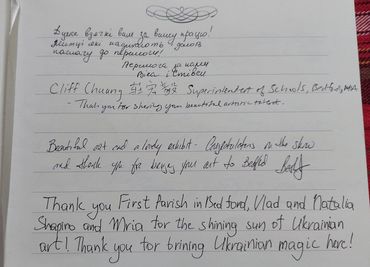 Дуже вдячні вам за вашу працю!
Митці які надихають і дають
наснагу до перемоги!
Перемога за нами
Cliff Chuang Superintendent of Schools, Bedford, MA
- Thank you for sharing your beautiful artistic talent.
Beautiful art and a lovely exhibit. Congratulations on the show
and thank you for bringing your art to Bedford
Thank you First Parish in Bedford, Vlad and Natalia
Shapiro and Mria for the shining sun of Ukrainian
art! Thank you for brining Ukrainian magic here!